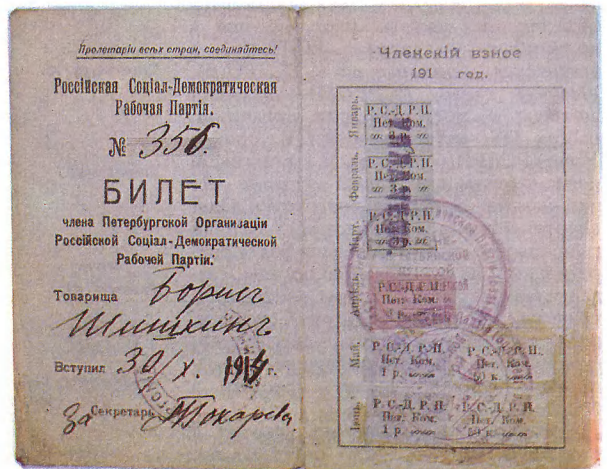 Пролетаріи всѣхъ стран, соединяйтесь!
Россійская Соціал-Демократическая
Рабочая Партія.
№ 356.
БИЛЕТ
члена Петербургской Организаціи
Россійской Соціал-Демократической
Рабочей Партіи.
Товарища Борисъ
Шишкинъ
Вступил 30/X. 1914 г.
За Секретарь Токарева
Членскій взнос
191 год.
Январь.
Р. С.-Д. Р. П.
Пет. Ком.
3 р.
Февраль.
Р. С.-Д. Р. П.
Пет. Ком.
3 р.
Март.
Р. С.-Д. Р. П.
Пет. Ком.
3 р.
Апрѣль.
Р. С.-Д. Р. П.
Пет. Ком.
Май.
Р. С.-Д. Р. П. Р. С.-Д. Р. П.
Пет. Ком. Пет. Ком.
1 р. 50 к.
Іюнь.
Р. С.-Д. Р. П. Р. С.-Д. Р. П.
Пет. Ком. Пет. Ком.
1 р. 50 к.